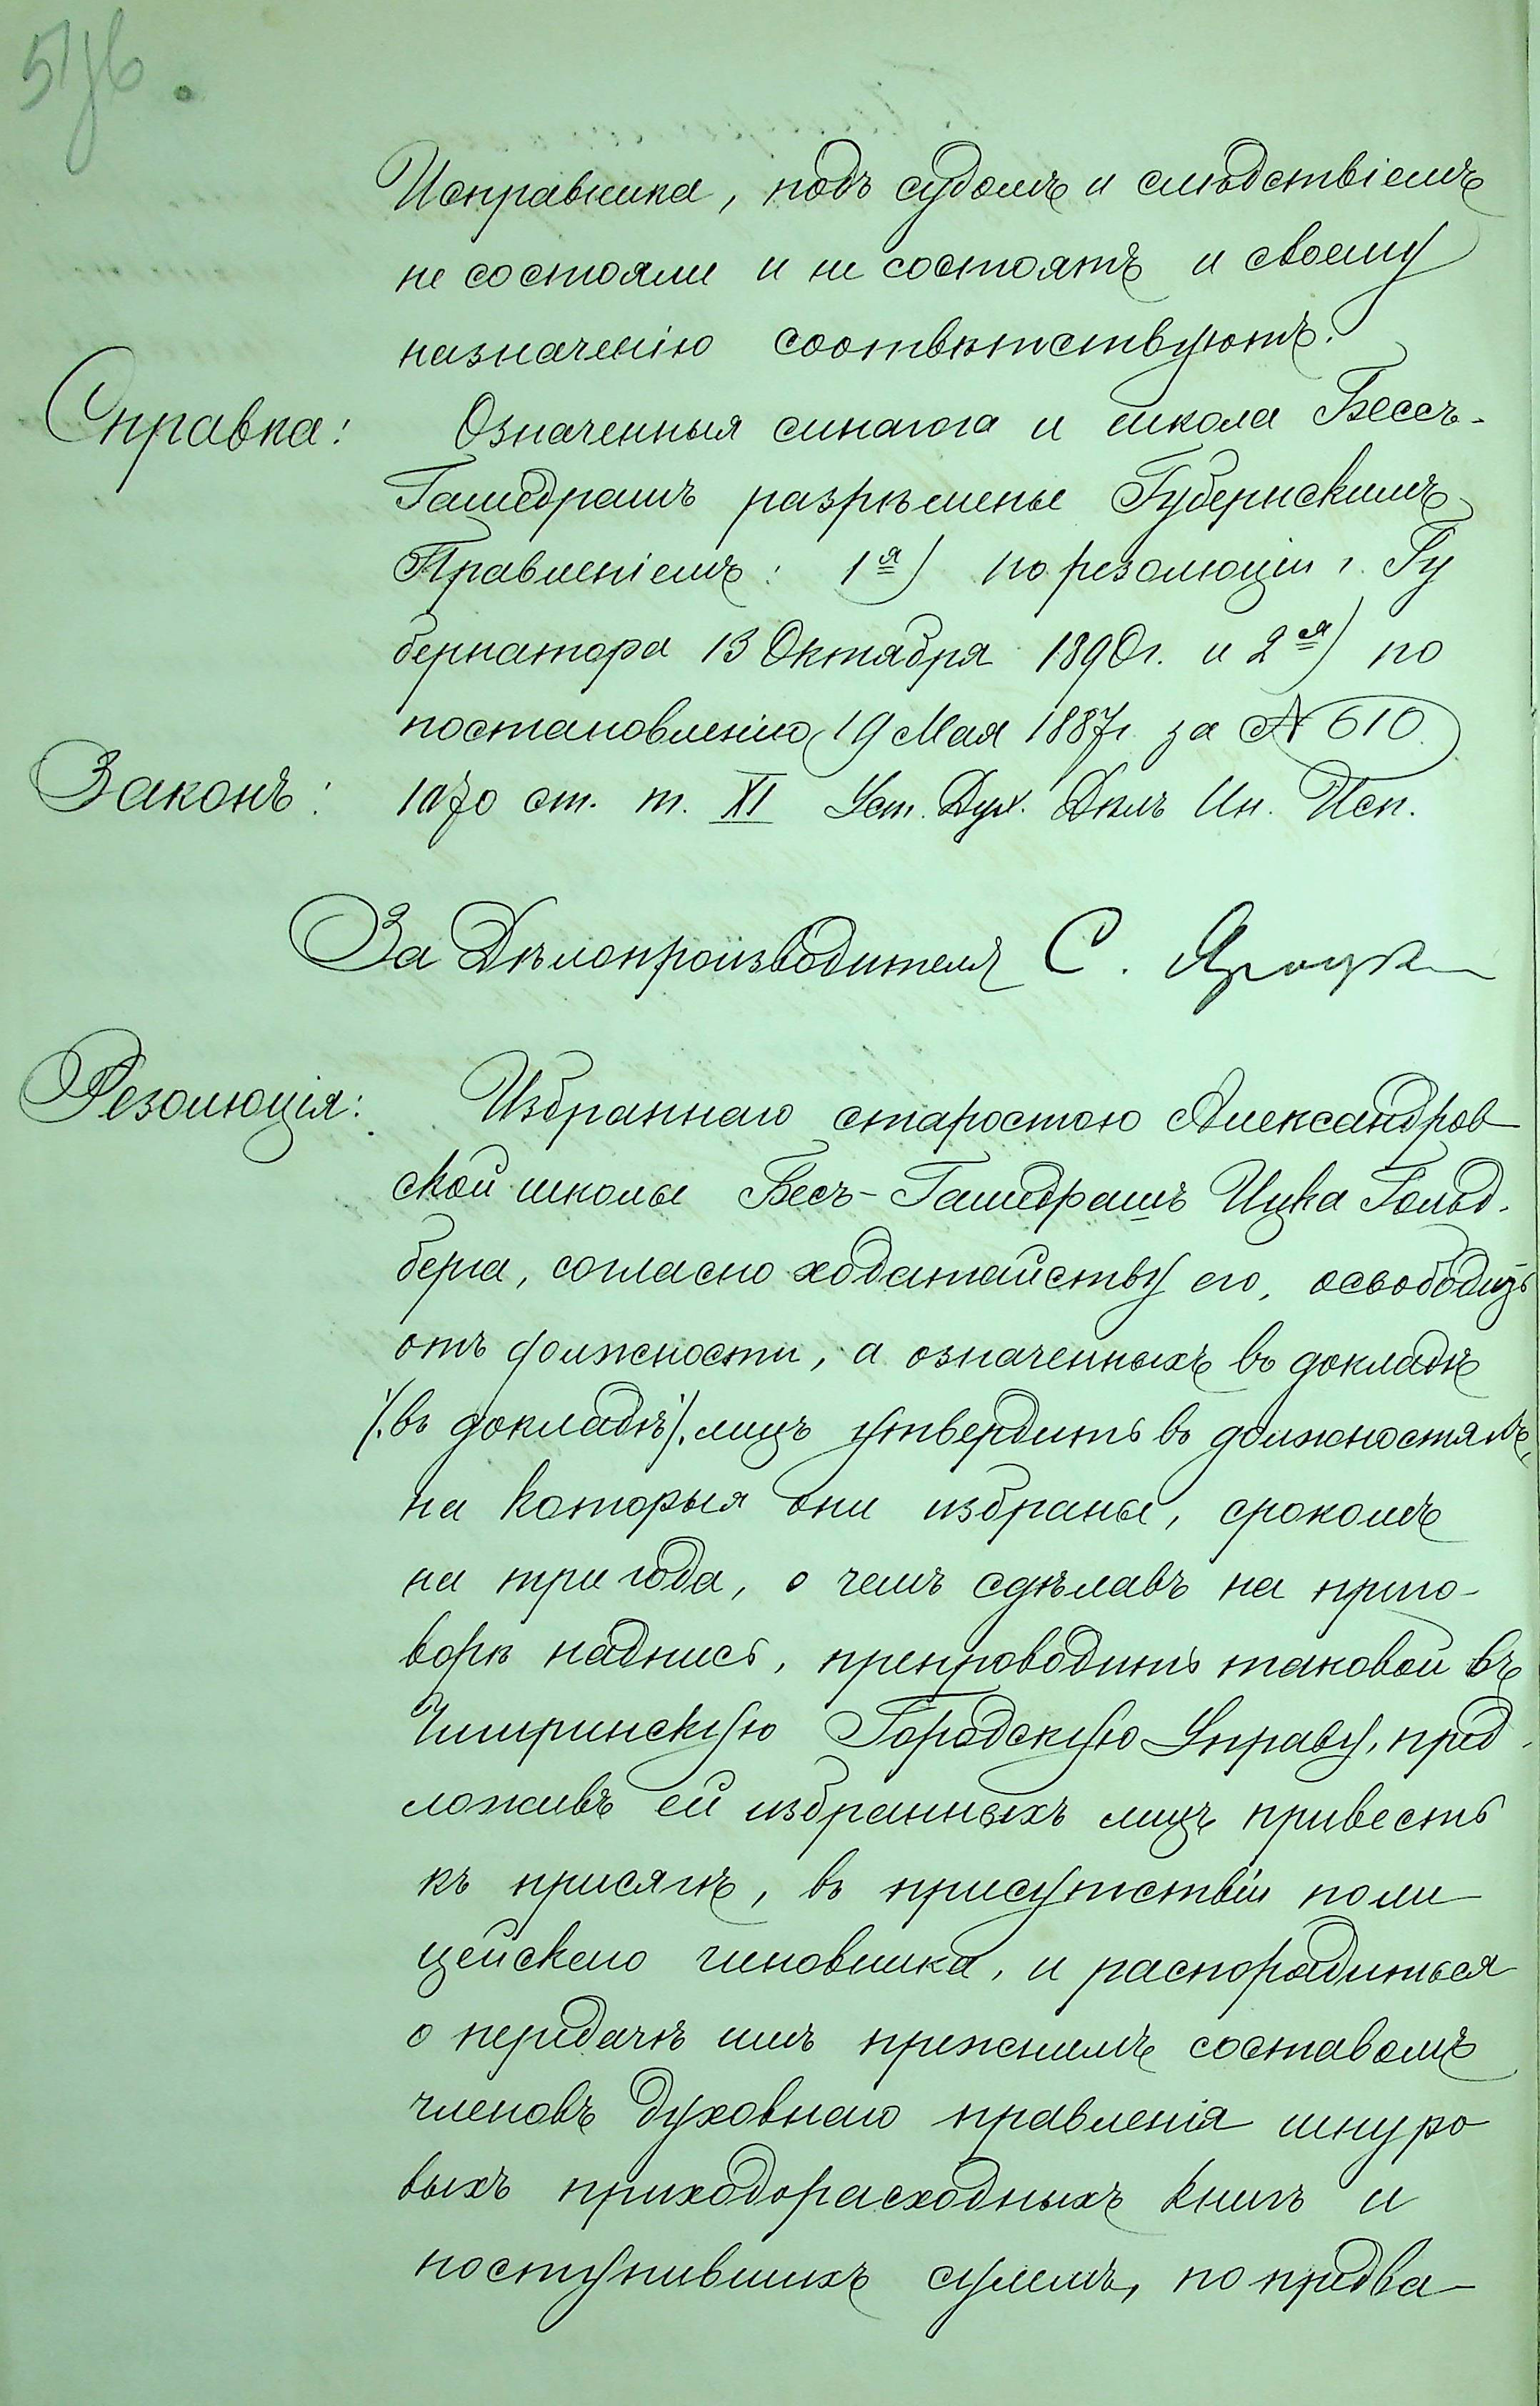 Исправника, подъ судомъ и слѣдствіемъ
не состояли и не состоятъ и своему
назначенію соотвѣтствуютъ.
Справка: Означенныя синагога и школа Бессъ-
Гамедрашъ разрѣшены Губернскимъ
Правленіемъ: 1я) по резолюціи г. Гу
бернатора 13 Октября 1890г. и 2я) по
постановленію 19 Мая 1887г. за № 610.
Законъ: 1070 ст. т. XI Уст. Дух. Дѣлъ Ин. Исп.
За Дѣлопроизводителя С.
Резолюція: Избраннаго старостою Александров
ской школы Бесъ-Гамедрашъ Ицка Гольд-
берга, согласно ходатайству его, освободить
отъ должности, а означенныхъ въ докладѣ
/.въ докладѣ/. лицъ утвердить въ должностяхъ,
на которыя они избраны, срокомъ
на три года, о чемъ сдѣлавъ на приго-
ворѣ надпись, препроводить таковой въ
Чигиринскую Городскую Управу, пред-
ложивъ ей избранныхъ лицъ привесть
къ присягѣ, въ присутствіи поли
цейскаго чиновника, и распорядиться
о передачѣ имъ прежнимъ составомъ
членовъ духовнаго правленія шнуро
выхъ приходорасходныхъ книгъ и
поступившихъ суммъ, по предва-